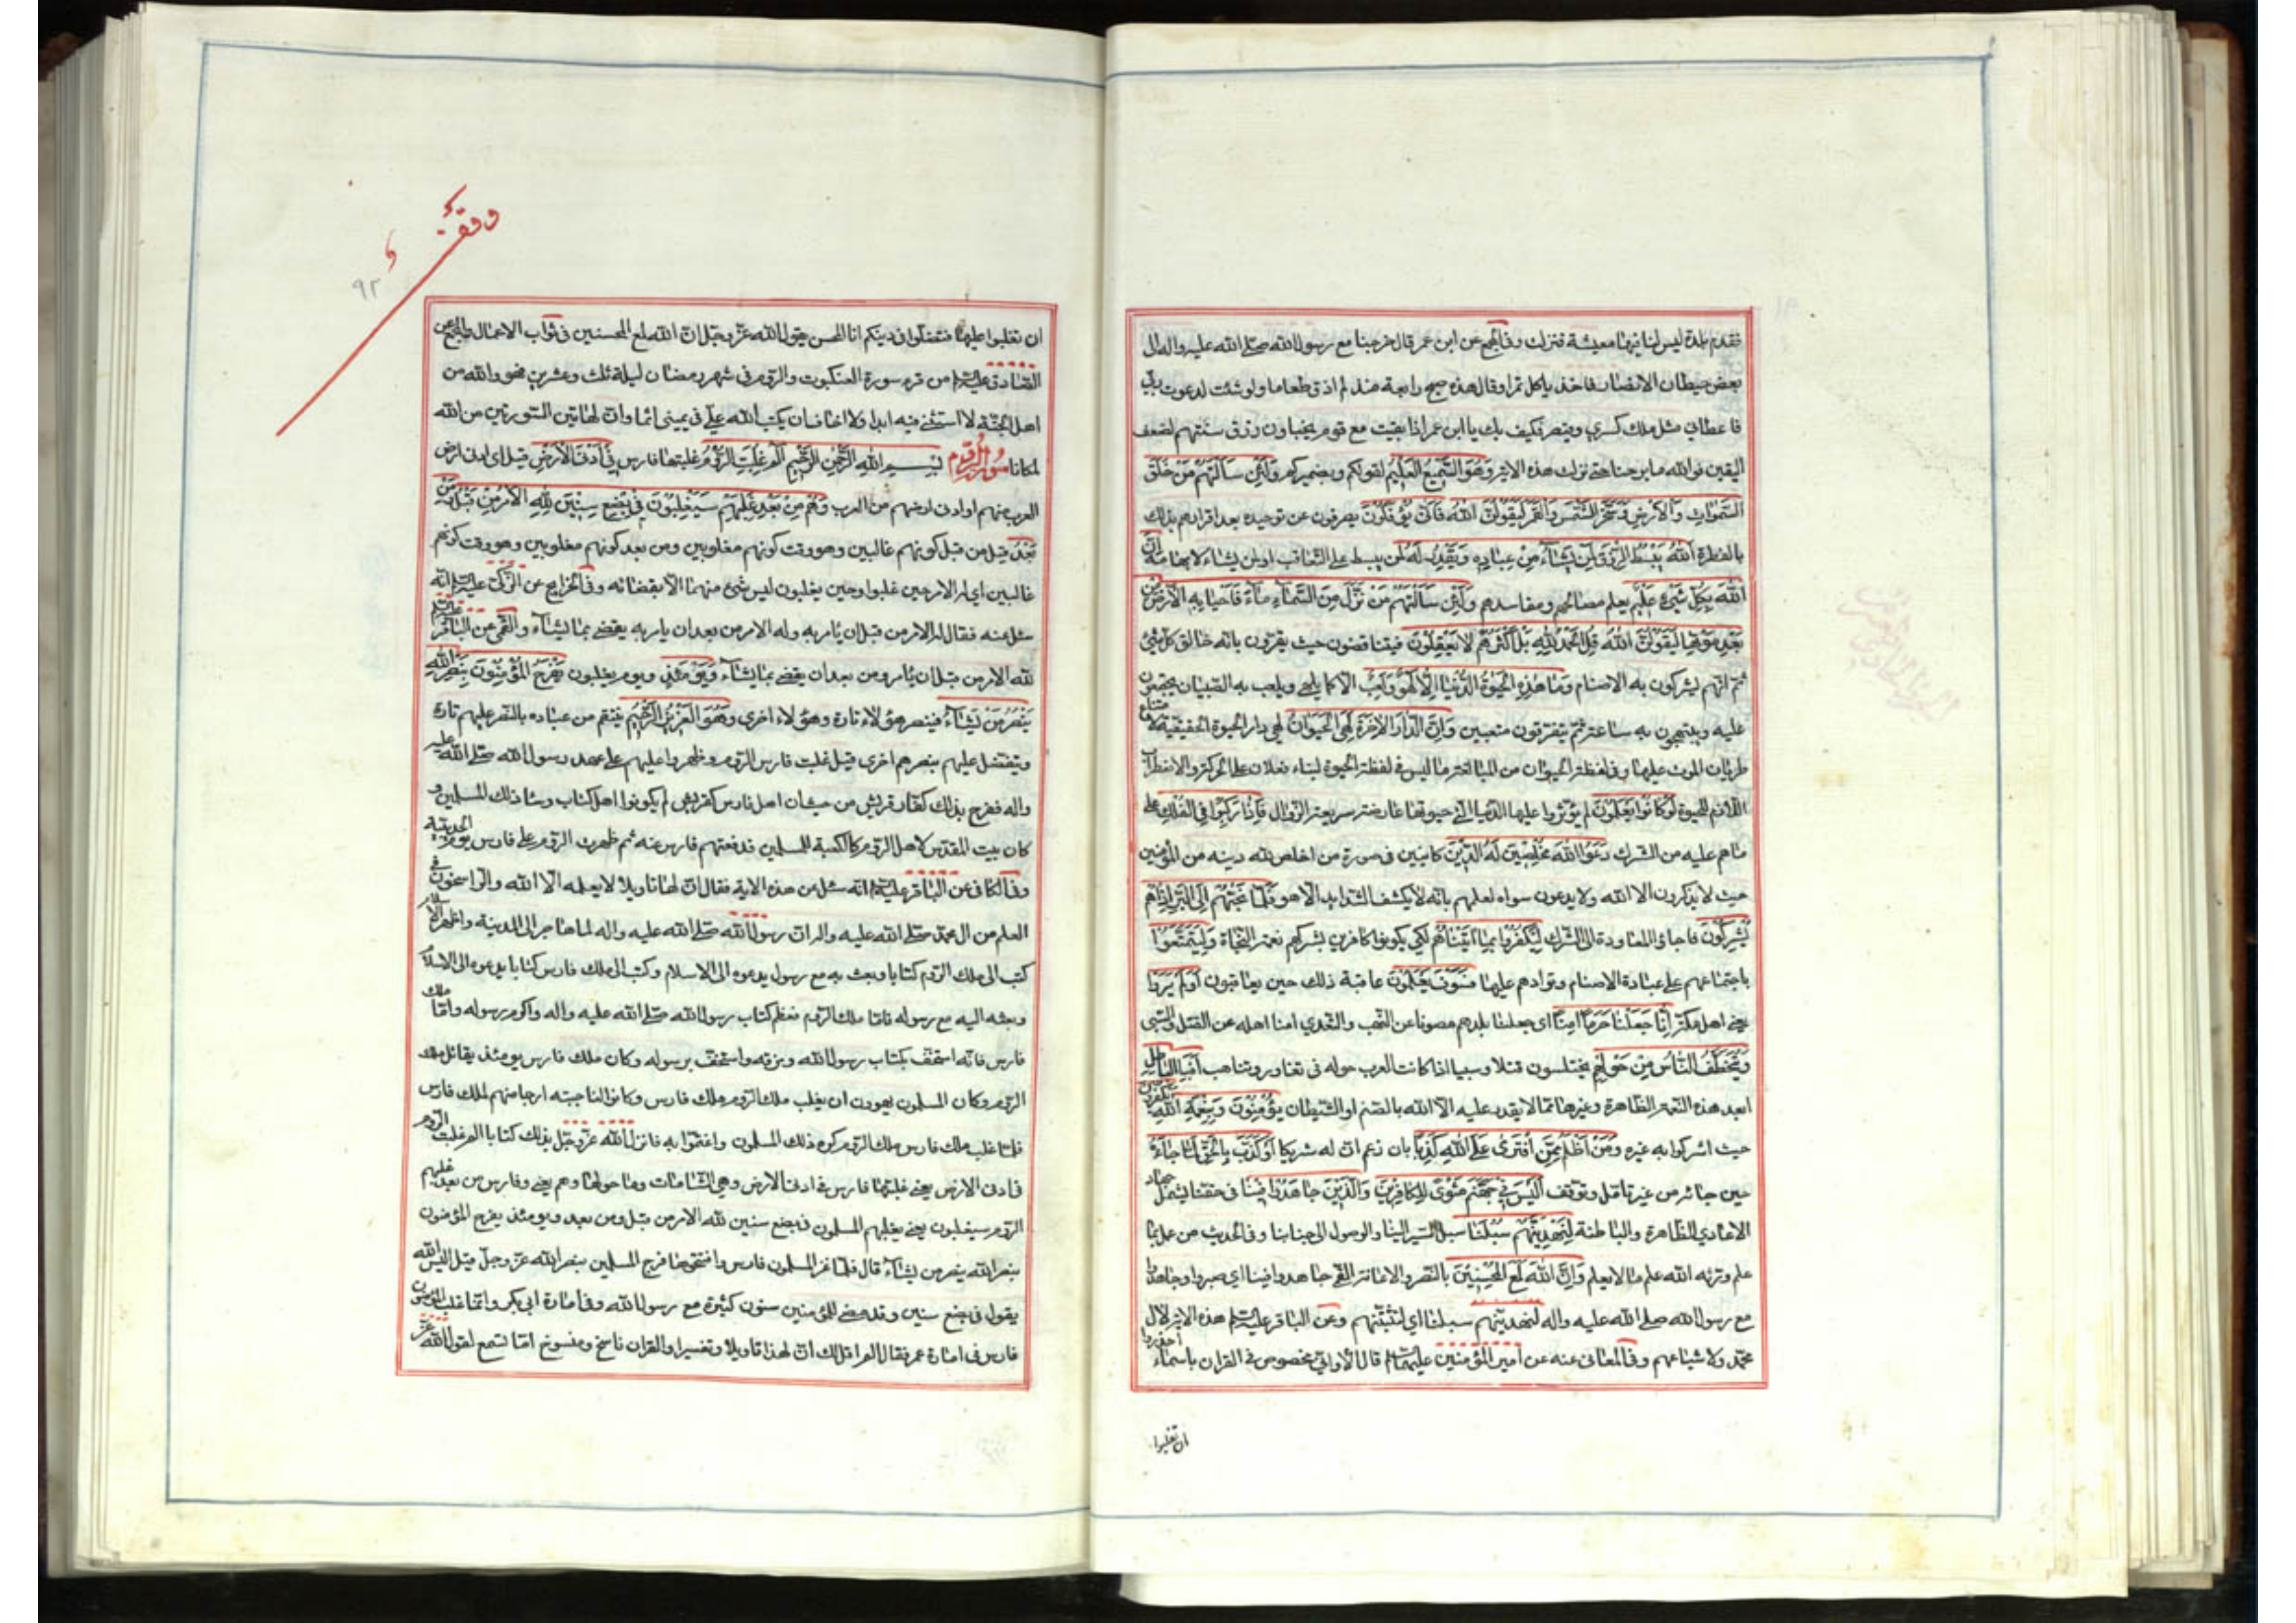 فقدم بلدة ليس لنا فيها معيشة فنزلت وفي المجمع عن ابن عمر قال خرجنا مع رسول الله صلى الله عليه واله الى
بعض حيطان الانصار فاخذ ياكل تمرا وقال هذه صبح رابعة منذ لم اذق طعاما ولو شئت لدعوت ربي
فاعطاني مثل ملك كسرى وقيصر فكيف بك يا ابن عمر اذا بقيت مع قوم يخبأون رزق سنتهم لضعف
اليقين فوالله ما برحنا حتى نزلت هذه الاية وَهُوَ السَّمِيعُ الْعَلِيمُ لقولكم وبضميركم وَلَئِنْ سَأَلْتَهُمْ مَنْ خَلَقَ
السَّمٰوَاتِ وَالْاَرْضَ وَسَخَّرَ الشَّمْسَ وَالْقَمَرَ لَيَقُولُنَّ اللهُ فَاَنّٰى يُؤْفَكُونَ يصرفون عن توحيده بعد اقرارهم بذلك
بالفطرة اَللهُ يَبْسُطُ الرِّزْقَ لِمَنْ يَشَاءُ مِنْ عِبَادِهِ وَيَقْدِرُ لَهُ لمن يبسط على التعاقب او لمن يشاء لابهامه اِنَّ
اللهَ بِكُلِّ شَيْءٍ عَلِيمٌ يعلم مصالحهم ومفاسدهم وَلَئِنْ سَأَلْتَهُمْ مَنْ نَزَّلَ مِنَ السَّمَاءِ مَاءً فَاَحْيَا بِهِ الْاَرْضَ مِنْ
بَعْدِ مَوْتِهَا لَيَقُولُنَّ اللهُ قُلِ الْحَمْدُ لِلّٰهِ بَلْ اَكْثَرُهُمْ لَا يَعْقِلُونَ فيتناقضون حيث يقرون بانه خالق كل شيء
ثم انهم يشركون به الاصنام وَمَا هٰذِهِ الْحَيٰوةُ الدُّنْيَا اِلَّا لَهْوٌ وَلَعِبٌ الا كما يلهى ويلعب به الصبيان يجتمعون
عليه ويبتهجون به ساعة ثم يتفرقون متعبين وَاِنَّ الدَّارَ الْاٰخِرَةَ لَهِيَ الْحَيَوَانُ لهي دار الحيوة الحقيقية لامتناع
طريان الموت عليها وفي لفظة الحيوان من المبالغة ما ليس في لفظة الحيوة لبناء فعلان على الحركة والاضطراب
اللازم للحيوة لَوْ كَانُوا يَعْلَمُونَ لم يؤثروا عليها الدنيا التي حيوتها عارضة سريعة الزوال فَاِذَا رَكِبُوا فِي الْفُلْكِ على
ما هم عليه من الشرك دَعَوُا اللهَ مُخْلِصِينَ لَهُ الدِّينَ كاينين في صورة من اخلص لله دينه من المؤمنين
حيث لا يذكرون الا الله ولا يدعون سواه لعلمهم بانه لا يكشف الشدايد الا هو فَلَمَّا نَجّٰهُمْ اِلَى الْبَرِّ اِذَا هُمْ
يُشْرِكُونَ فاجاؤا المعاودة الى الشرك لِيَكْفُرُوا بِمَا اٰتَيْنَاهُمْ لكي يكونوا كافرين بشركهم نعمة النجاة وَلِيَتَمَتَّعُوا
باجتماعهم على عبادة الاصنام وتوادهم عليها فَسَوْفَ يَعْلَمُونَ عاقبة ذلك حين يعاقبون اَوَلَمْ يَرَوْا
يعني اهل مكة اَنَّا جَعَلْنَا حَرَمًا اٰمِنًا اى جعلنا بلدهم مصونا عن النهب والتعدي امنا اهله عن القتل والسبى
وَيُتَخَطَّفُ النَّاسُ مِنْ حَوْلِهِمْ يختلسون قتلا وسبيا اذا كانت العرب حوله في تغاور وتناهب اَفَبِالْبَاطِلِ
ابعد هذه النعمة الظاهرة وغيرها مما لا يقدر عليه الا الله بالصنم او الشيطان يُؤْمِنُونَ وَبِنِعْمَةِ اللهِ يَكْفُرُونَ
حيث اشركوا به غيره وَمَنْ اَظْلَمُ مِمَّنِ افْتَرٰى عَلَى اللهِ كَذِبًا بان زعم ان له شريكا اَوْ كَذَّبَ بِالْحَقِّ لَمَّا جَاءَهُ
حين جائه من غير تامل وتوقف اَلَيْسَ فِي جَهَنَّمَ مَثْوًى لِلْكَافِرِينَ وَالَّذِينَ جَاهَدُوا فِينَا في حقنا ليشمل جهاد
الاعادي الظاهرة والباطنة لَنَهْدِيَنَّهُمْ سُبُلَنَا سبل السير الينا والوصول الى جنابنا وفي الحديث من عمل بما
علم ورثه الله علم ما لا يعلم وَاِنَّ اللهَ لَمَعَ الْمُحْسِنِينَ بالنصر والاعانة القمي جاهدوا فينا اي صبروا وجاهدوا
مع رسول الله صلى الله عليه واله لنهدينهم سبلنا اي لنثبتنهم وعن الباقر عليه السلم هذه الاية لال
محمد ولاشياعهم وفي المعاني عنه عن امير المؤمنين عليهما السلم قال الا واني مخصوص في القران باسماء احذروا
ان تغلبوا
وقف
٩٢
ان تغلبوا عليها فتضلوا في دينكم انا المحسن يقول الله عز وجل ان الله لمع المحسنين في ثواب الاعمال والمجمع عن
الصادق عليه السلم من قرء سورة العنكبوت والروم في شهر رمضان ليلة ثلث وعشرين فهو والله من
اهل الجنة لا استثنى فيه ابدا ولا اخاف ان يكتب الله علي في يميني اثما وان لهاتين السورتين من الله
لمكانا سورة الروم بسم الله الرحمن الرحيم الم غُلِبَتِ الرُّومُ غلبتها فارس فِي اَدْنَى الْاَرْضِ قيل اى ادنى ارض
العرب منهم او ادنى ارضهم من العرب وَهُمْ مِنْ بَعْدِ غَلَبِهِمْ سَيَغْلِبُونَ فِي بِضْعِ سِنِينَ لِلّٰهِ الْاَمْرُ مِنْ قَبْلُ وَمِنْ
بَعْدُ قيل من قبل كونهم غالبين وهو وقت كونهم مغلوبين ومن بعد كونهم مغلوبين وهو وقت كونهم
غالبين اي له الامر حين غلبوا وحين يغلبون ليس شئ منهما الا بقضائه وفي الخرايج عن الزكي عليه السلم انه
سئل عنه فقال له الامر من قبل ان يامر به وله الامر من بعد ان يامر به يقضي بما يشاء والقمي عن الباقر عليه السلم
لله الامر من قبل ان يامر ومن بعد ان يقضي بما يشاء وَيَوْمَئِذٍ ويوم يغلبون يَفْرَحُ الْمُؤْمِنُونَ بِنَصْرِ اللهِ
يَنْصُرُ مَنْ يَشَاءُ فينصر هؤلاء تارة وهؤلاء اخرى وَهُوَ الْعَزِيزُ الرَّحِيمُ ينتقم من عباده بالنصر عليهم تارة
ويتفضل عليهم بنصرهم اخرى قيل غلبت فارس الروم وظهروا عليهم على عهد رسول الله صلى الله عليه
واله ففرح بذلك كفار قريش من حيث ان اهل فارس كقريش لم يكونوا اهل كتاب وساء ذلك المسلمين و
كان بيت المقدس لاهل الروم كالكعبة للمسلمين فدفعتهم فارس عنه ثم ظهرت الروم على فارس يوم الحديبية
وفي الكافي عن الباقر عليه السلم انه سئل عن هذه الاية فقال ان لها تاويلا لا يعلمه الا الله والراسخون في
العلم من ال محمد صلى الله عليه واله ان رسول الله صلى الله عليه واله لما هاجر الى المدينة واظهر الاسلام
كتب الى ملك الروم كتابا وبعث به مع رسول يدعوه الى الاسلام وكتب الى ملك فارس كتابا يدعوه الى الاسلام
وبعثه اليه مع رسوله فاما ملك الروم فعظم كتاب رسول الله صلى الله عليه واله واكرم رسوله واما ملك
فارس فانه استخف بكتاب رسول الله ومزقه واستخف برسوله وكان ملك فارس يومئذ يقاتل ملك
الروم وكان المسلمون يهوون ان يغلب ملك الروم ملك فارس وكانوا لناحيته ارجا منهم لملك فارس
فلما غلب ملك فارس ملك الروم كره ذلك المسلمون واغتموا به فانزل الله عز وجل بذلك كتابا الم غلبت الروم
في ادنى الارض يعني غلبتها فارس في ادنى الارض وهي الشامات وما حولها وهم يعني وفارس من بعد غلبهم
الروم سيغلبون يعني يغلبهم المسلمون في بضع سنين لله الامر من قبل ومن بعد ويومئذ يفرح المؤمنون
بنصر الله ينصر من يشاء قال فلما غزا المسلمون فارس وافتتحوها فرح المسلمين بنصر الله عز وجل قيل اليس الله
يقول في بضع سنين وقد مضى للمؤمنين سنون كثيرة مع رسول الله وفي امارة ابي بكر وانما غلب المؤمنون
فارس في امارة عمر فقال الم اقل لك ان لهذا تاويلا وتفسيرا والقران ناسخ ومنسوخ اما تسمع لقول الله عز